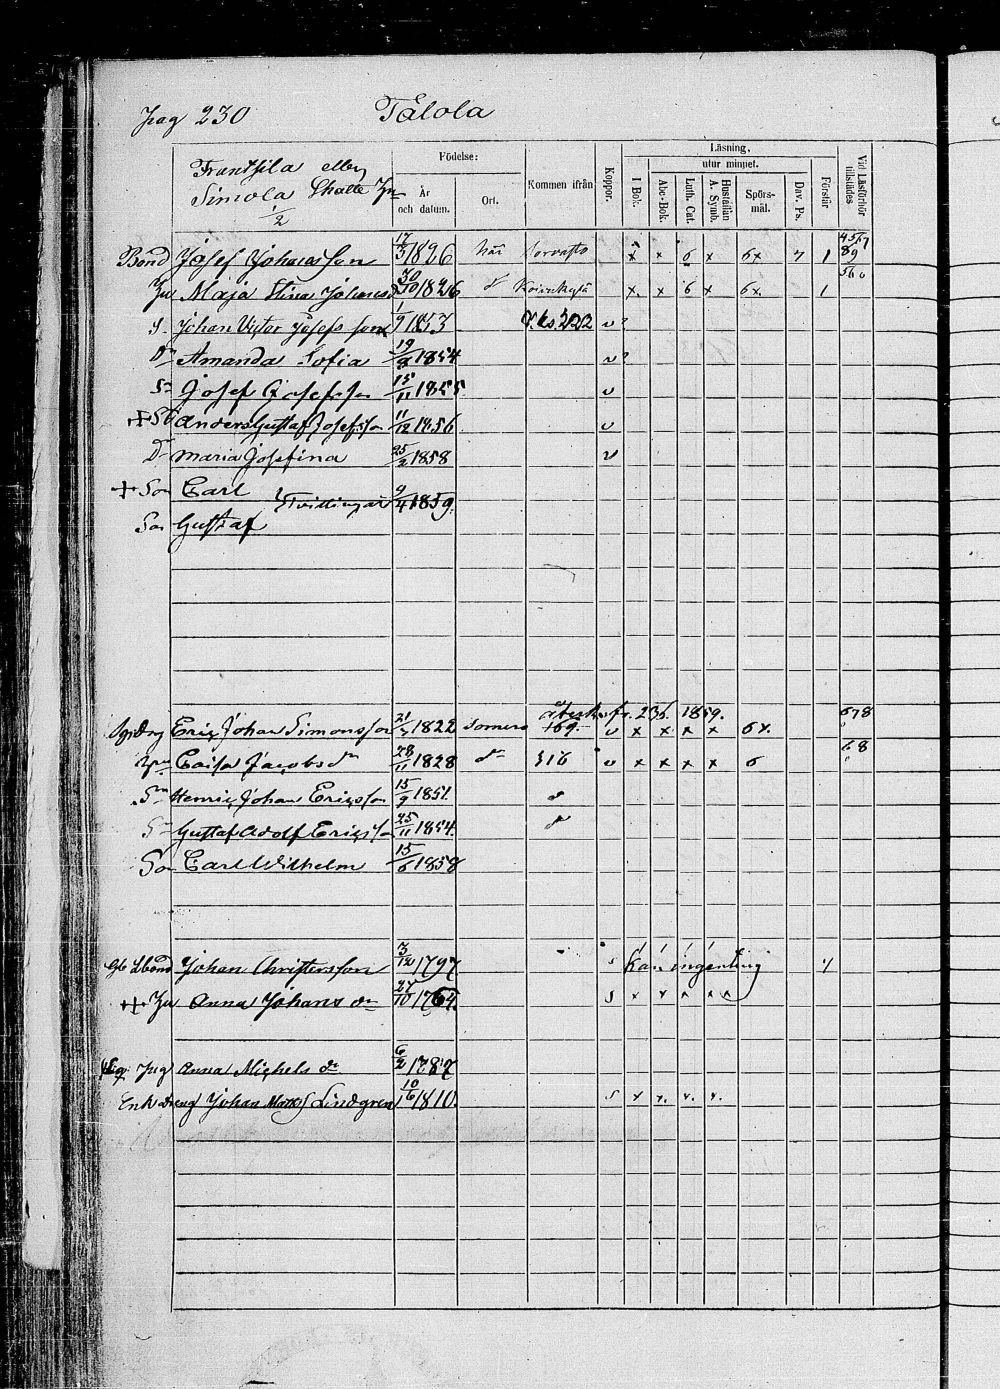 Pag 230 Tålola
Frantsila eller
Simola Skatte
1/2
Födelse:
År och datum.
Ort.
Kommen ifrån
Koppor.
Läsning,
utur minnet.
I Bok.
Abc-Bok.
Luth. Cat.
Hustaflan A. Symb.
Spörsmål.
Dav. Ps.
Förstår
Vid Läsförhör tillstädes
Bond Josef Johansson 17/3 1826 här x x 6 x 6x 1
Maja Stina Johansd 30/10 1826 x x 6 x 6x 1
S. Johan Victor Josefsson 1/9 1853 222 v?
Dr Amanda Sofia 19/9 1854 v?
Sn Josef Josefsson 15/11 1855 v
Anders Gustaf Josefsson 11/12 1856 v
Dr Maria Josefina 25/2 1858 v
+ Son Carl } Tvillingar 9/4 1859
Son Gustaf
återk. fr. 236. 1859.
Eric Johan Simonsson 21/5 1822 Somero v x x x x 6x. 678
Caisa Jacobs dr 28/11 1828 dr 316 v x x x x 6 68
Sn Henric Johan Ericsson 15/9 1851
Sn Gustaf Adolf Ericsson 25/11 1854
Son Carl Wilhelm 15/6 1858
Johan Christersson 3/12 1797 s Kan ingenting
Anna Johans dr 27/10 s x x x x x
Anna Michels dr 6/2 1787
Johan Matts Lindgren 10/6 1810. s x x. x. x.